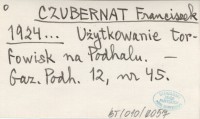 CZUBERNAT Franciszek
1924... Użytkowanie tor-
fowisk na Podhalu. —
Gaz. Podh. 12, nr 45.
BT/010/8057